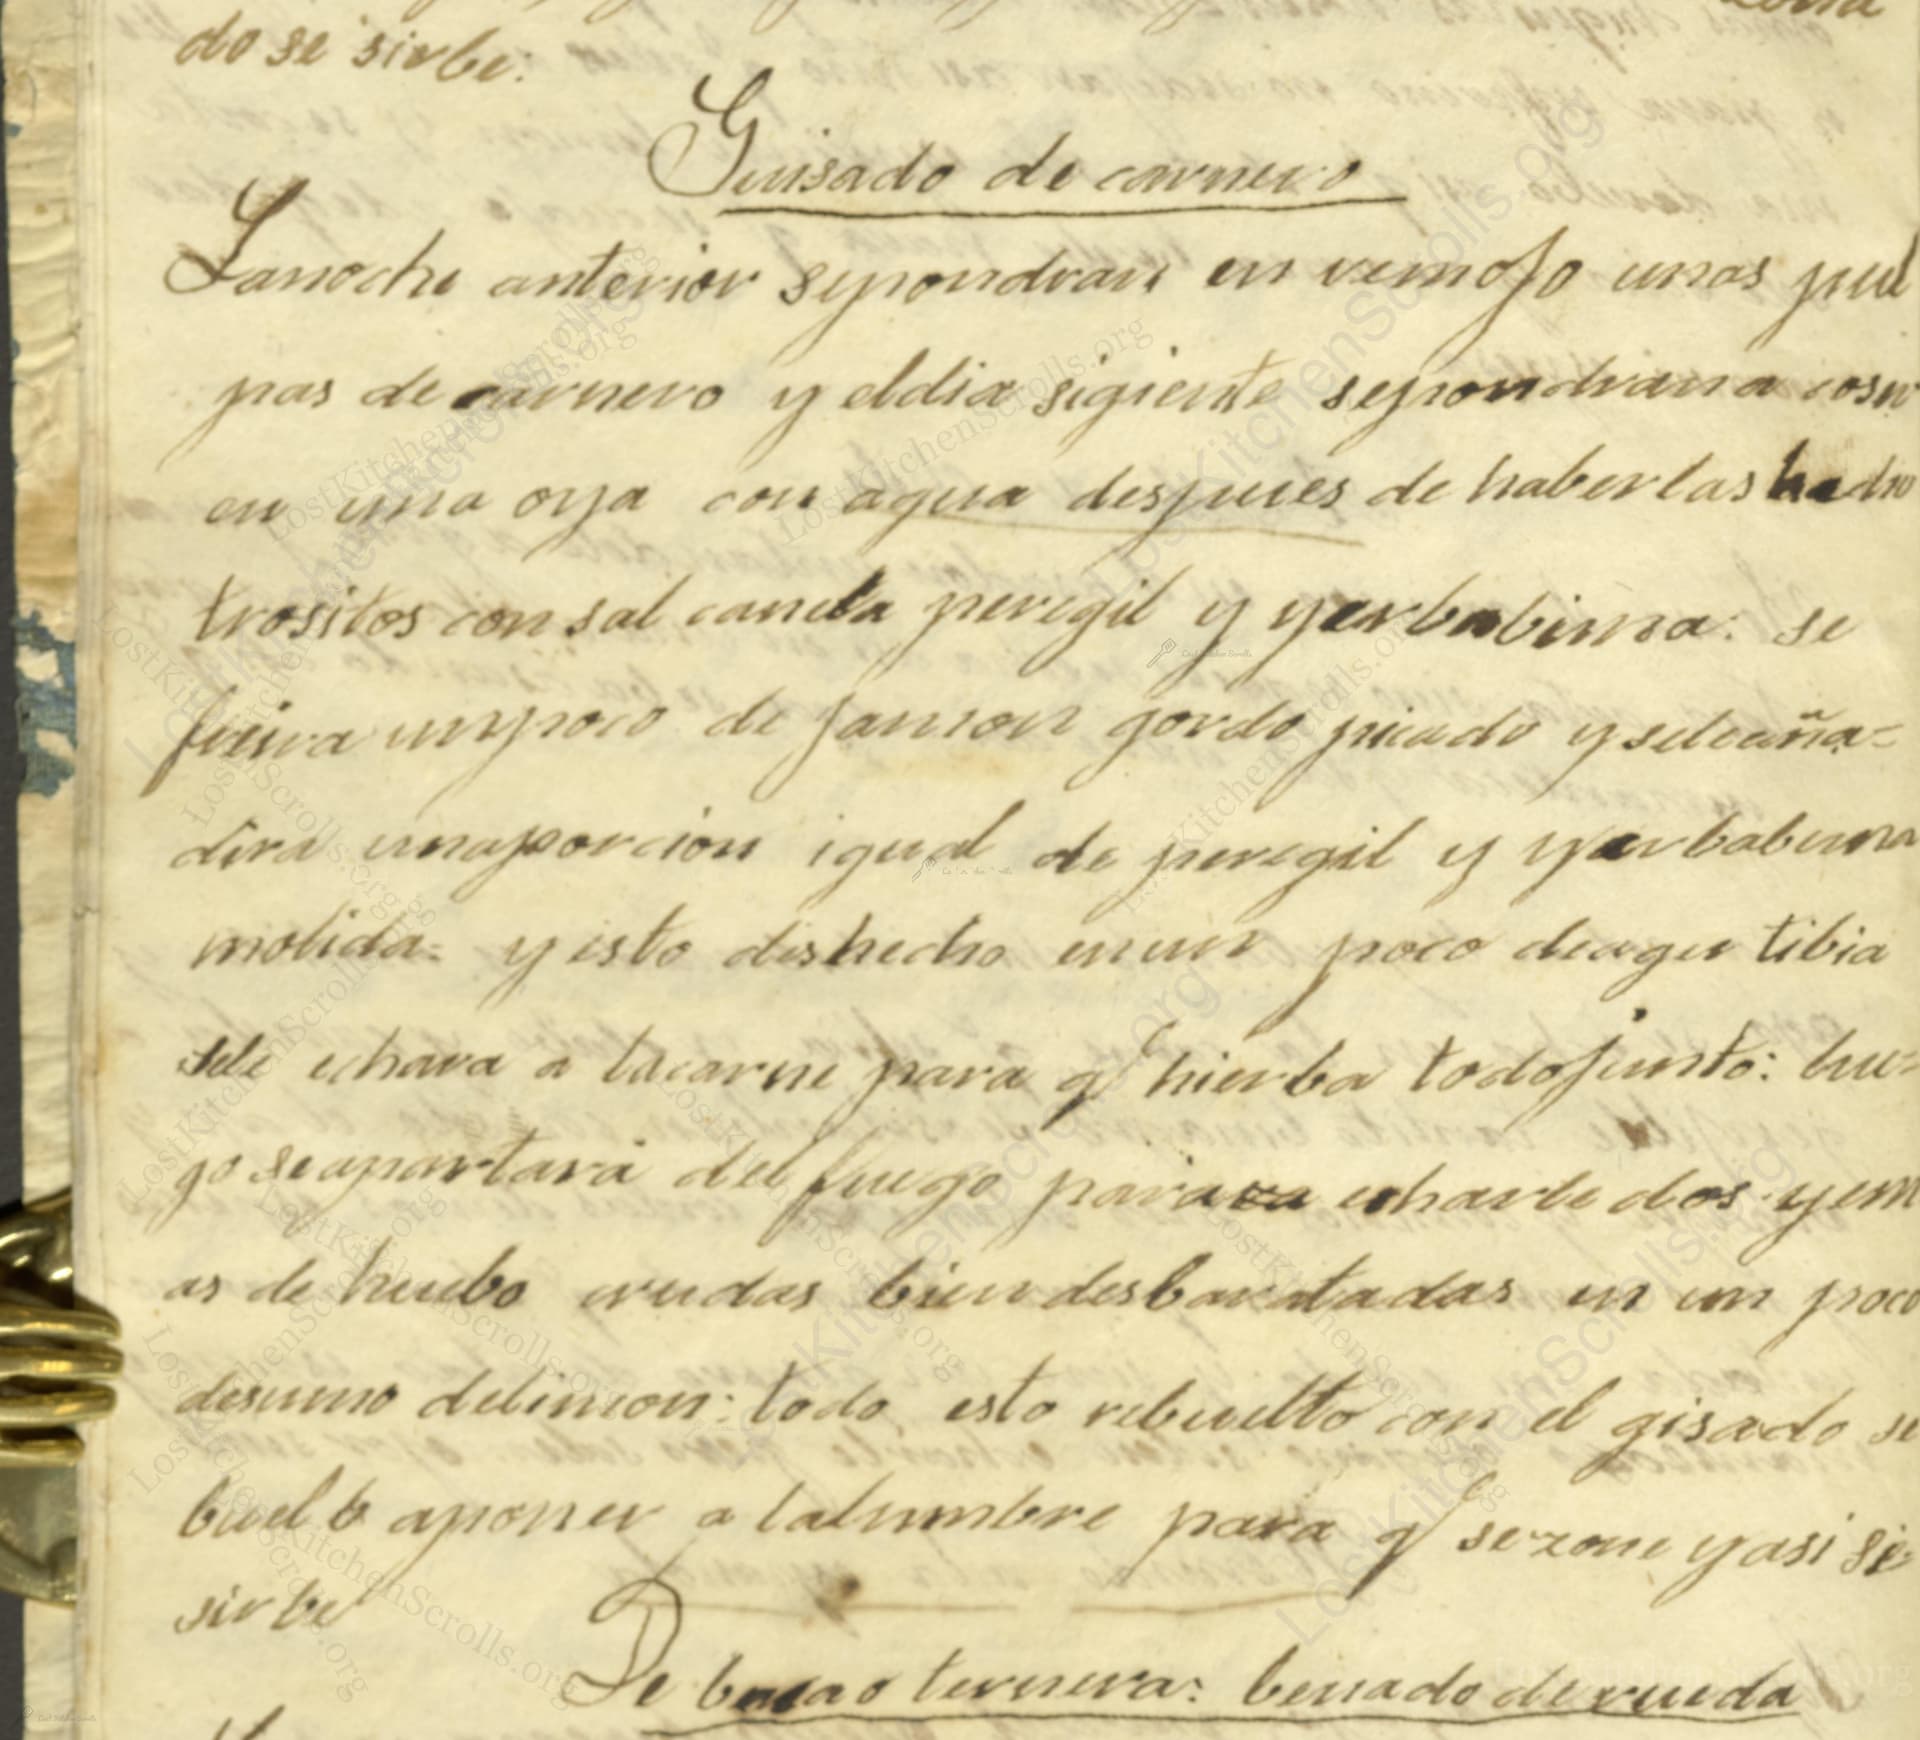 do se sirbe:
Guisado de carnero
Lanoche anterior sepondran en remojo unas pul
pas de carnero y eldia sigiente sepondrana coser
en una oya con agua despues de haberlas hecho
trositos con sal canela peregil y yerbabuna: se
freira unpoco de jamon gordo picado y seleaña=
dira unaporcion igual de peregil y yerbabuena
molida: y esto deshecho enun poco deagua tibia
sele echara a lacarne para q^e hierba todojunto: lue=
go seapartará del fuego para echarle dos yem
as de huebo crudas bien desbaratadas en un poco
desumo delimon: todo esto rebuelto con el gisado se
buelbe aponer a lalumbre para q^e sezone yasi se
sirbe
De baca o ternera: benado de rueda